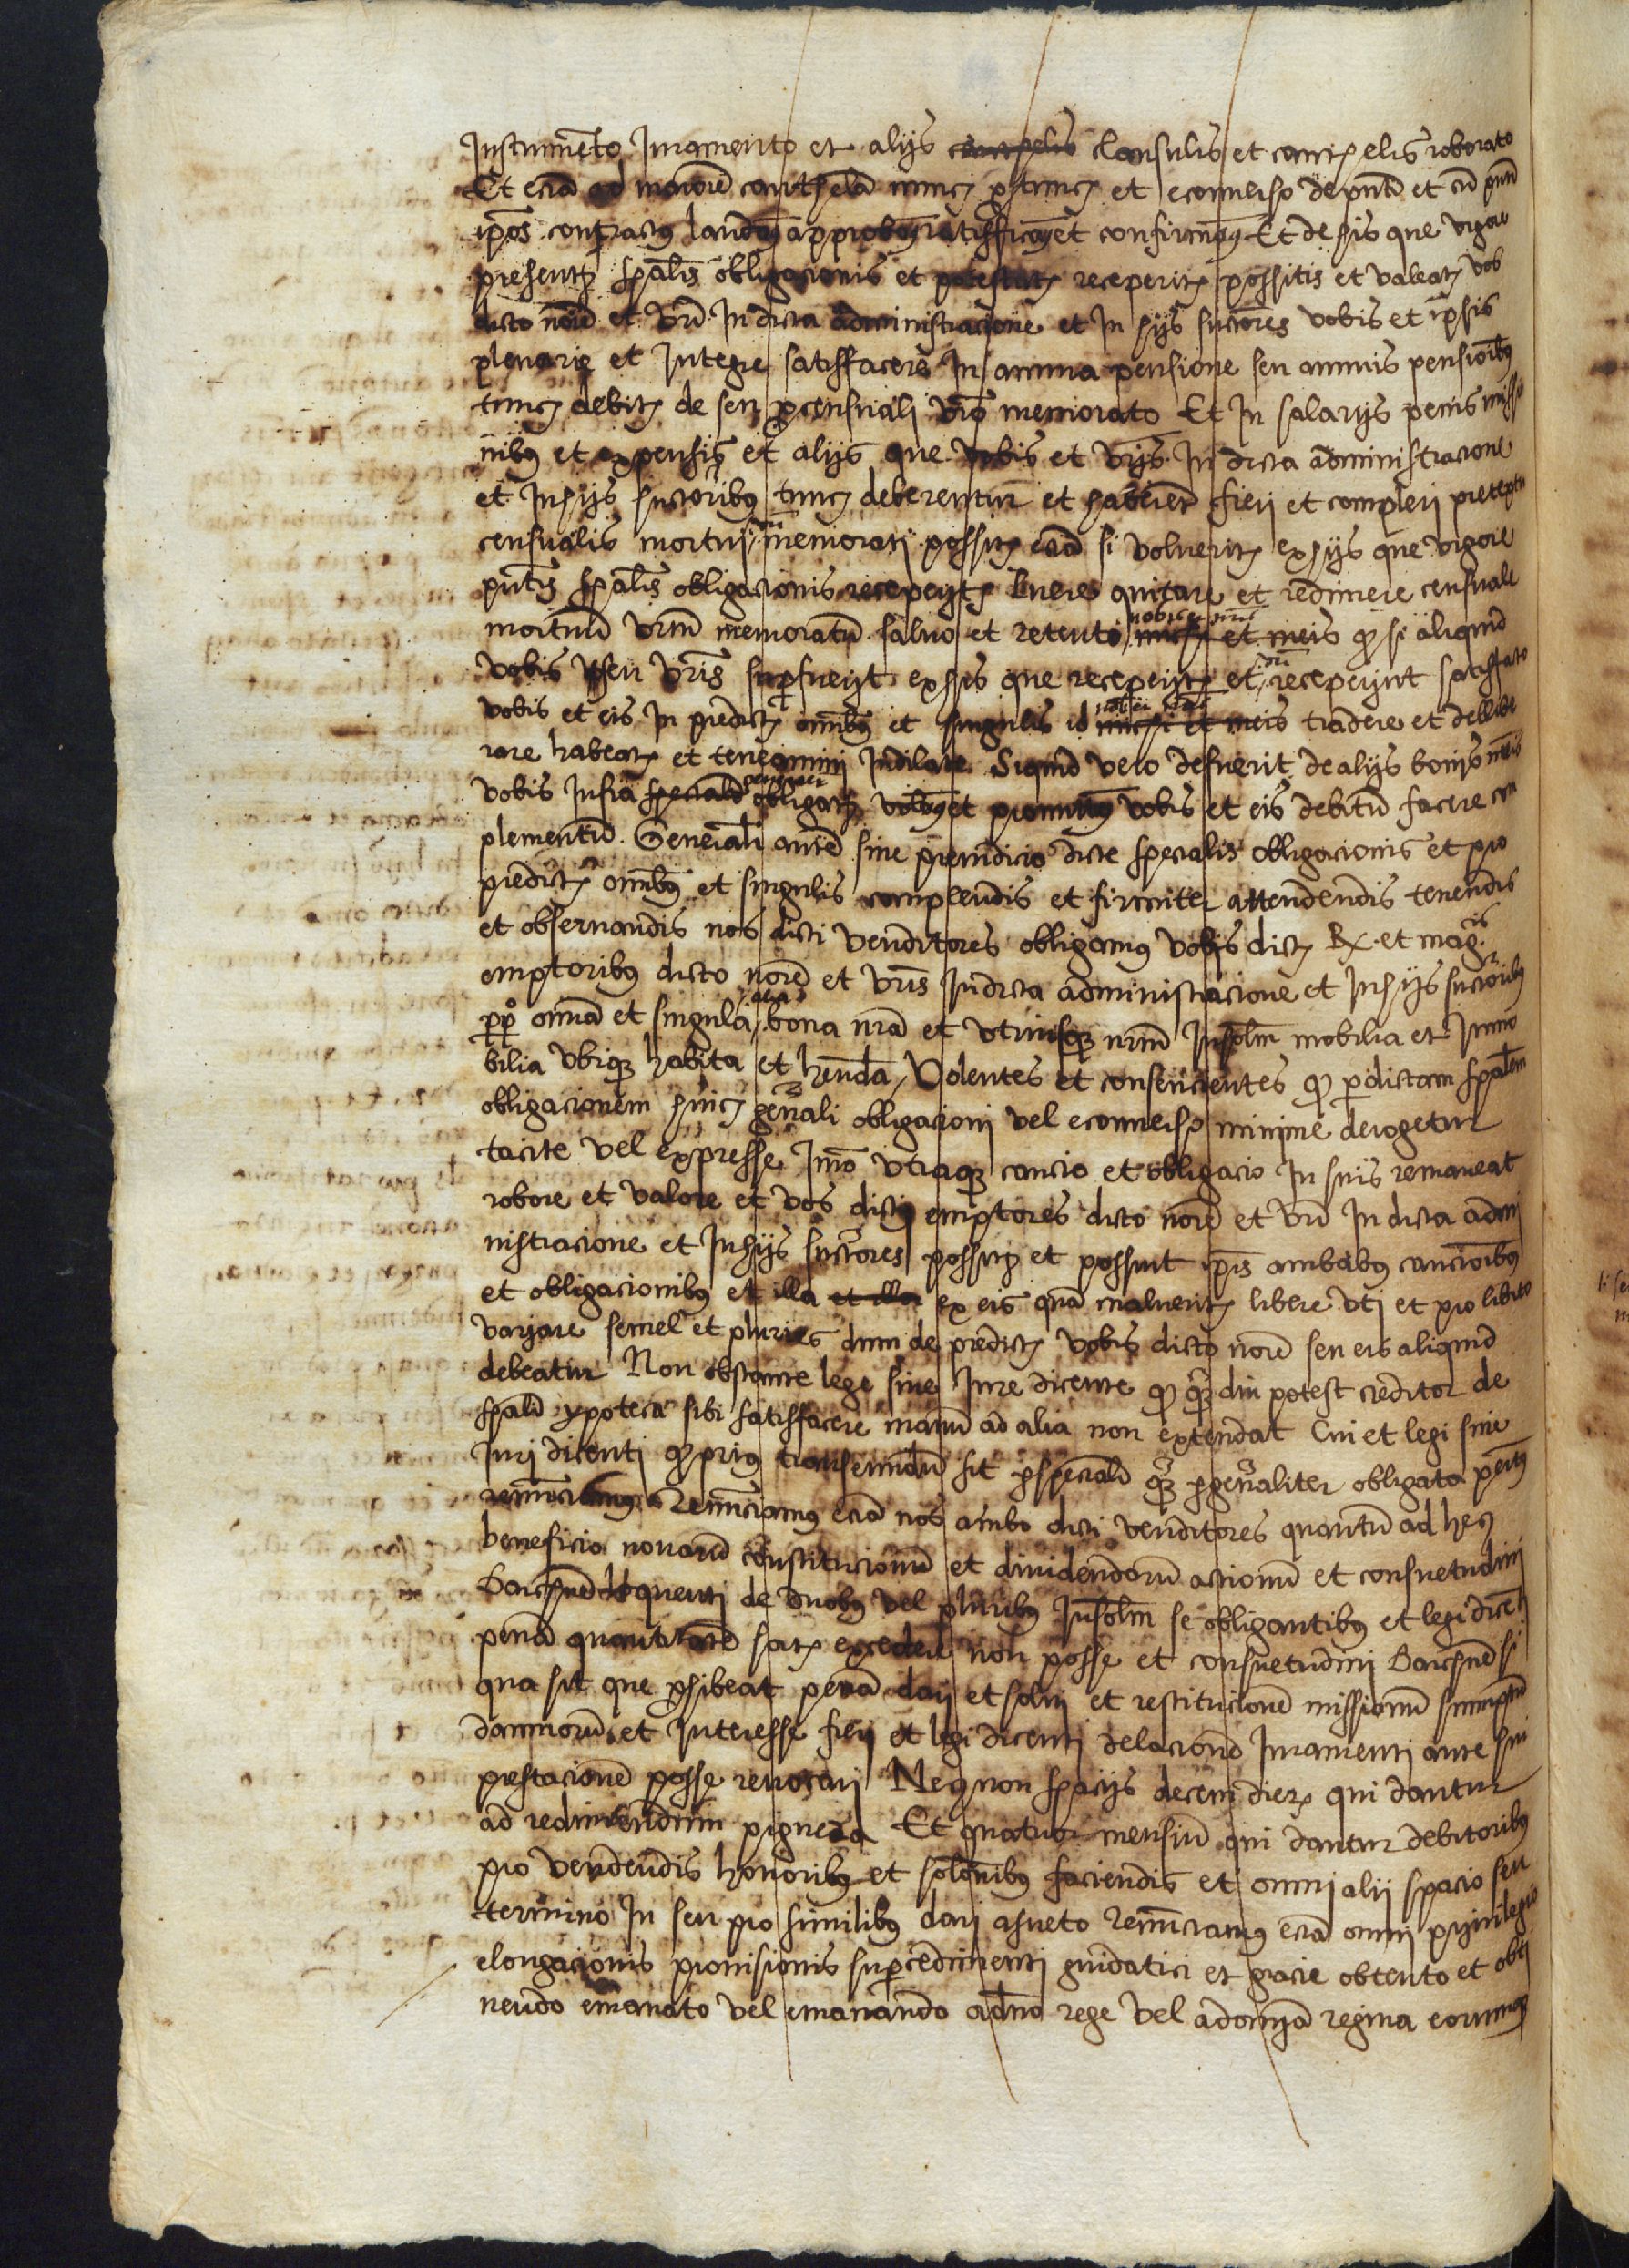 Instrumēto Juramento et alijs cautҫelis Clausulis et cautҫelis roborato
Et eciā ad maiorē cauthelā nunc ꝓ tunc et econuerso de pntī et cū pntī
ip̄os contractus laudam⁹ approbam⁹ ratifficam⁹ et confirmam⁹ Et de his que vigore
presentis sp̄alis obligacionis et potestatis receperitis possitis et valeatis vos
dicto noīe et vr̄i In dicta administracione et In hijs succ̄ores vobis et ip̄sis
plenarie et Integre satisfacere In annua pensione seu annuis pensioībus
tunc debitis de seu ꝓ censuali vr̄o memorato Et In salarijs penis missio
nibus et expensis et alijs que vobis et vr̄is In dicta administracione
et In hijs succ̄oribus tunc deberentur et haberent fieri et compleri pretextu
censualis mortui memorati possitis eciā si volueritis ex hijs que vigore
pntis sp̄alis obligacionis receperitis luere quitare et redimere censuale
mortuū vrm̄ memoratū saluo et retento michi et meis ꝙ si aliquid
vobis seu vr̄is suꝑfuerit ex his que receperitis et receperint satisfacto
vobis et eis In predictis oīnibus et singulis id michi et meis tradere et delibe
rare habeatis et teneamini Indilate Siquid vero defuerit de alijs bonis nr̄is
vobis Infra specialiter generaliter obligatis volum⁹ et promittim⁹ vobis et eis debitū facere com
plementū. Generali autē sine preiudicio dicte specialis obligacionis et pro
predictis oīnibus et singulis complendis et firmiter attendendis tenendis
et obseruandis nos dicti venditores obligamus vobis dictis Rx. et mag.cis
emptoribus dicto noīe et vr̄is In dicta administracione et In hijs succ̄oribus
ꝑꝑ° omnia et singula alia bona nr̄a et vtriusqꝫ nr̄m Insolm̄ mobilia et Immo
bilia vbiqꝫ habita et hen̄da Volentes et consencientes ꝙ ꝑ dictam sp̄alem
obligacionem huic gen̄ali obligacioni vel econuerso minime derogetur
tacite vel expresse Imō vtraqꝫ caucio et obligacio In suis remaneat
robore et valore et vos dicti emptores dicto noīe et vr̄i In dicta admi
nistracione et In hijs succ̄ores possitis et possint ip̄is ambabus caucioībus
et obligacionibus et illa et illa ex eis quā malueritis libere vti et pro libito
variare semel et pluries dum de predictis vobis dicto noīe seu eis aliquid
debeatur Non obstante lege siue Jure dicente ꝙ qꝫdiu potest creditor de
sp̄ali ypoteca sibi satisfacere manū ad alia non extendat Cui et legi siue
Juri dicenti ꝙ prius transeundū sit ꝑ specialiter qꝫ ꝑ gen̄aliter obligata penitus
renunciamus Renunciamus eciā nos ambo dicti venditores quantū ad hec
beneficio nouarū constitucionū et diuidendarū actionū et consuetudini
Barchn̄e loquenti de duobus vel pluribus Insolm̄ se obligantibus et legi dicēti
penā quantitatē satis excedere non posse et consuetudini Barchn̄e si
qua sit que ꝓhibeat penā dari et solui et restitucionē missionū sumptuū
damnorū et Interesse fieri et legi dicenti delacionē Juramenti ante sui
prestacionē posse reuocari Necnon spacijs decem dierum qui dantur
ad redimendum pignera Et quatuor mensiū qui dantur debitoribus
pro vendendis honoribus et solōnibus faciendis et omni alij spacio seu
termino In seu pro similibus dari asueto Renunciam⁹ eciā omni priuilegio
elongacionis prouisionis suꝑcedimenti guidatici et gracie obtento et obti
nendo emanato vel emanando a dn̄o rege vel a domina regina eorumqꝫ